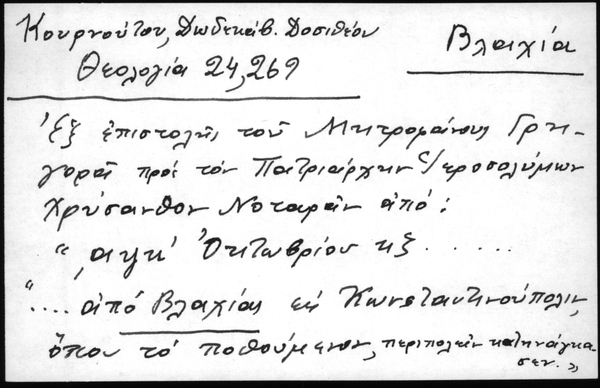 Κουρνούτου, Δωδεκάβ. Δοσιθέου
Βλαχία
Θεολογία 24,269
Ἐξ ἐπιστολῆς τοῦ Μητροφάνους Γρη-
γορᾶ πρός τόν Πατριάρχην Ἱεροσολύμων
Χρύσανθον Νοταρᾶν ἀπό:
" ͵αψκ' Ὀκτωβρίου κξ . . . . . .
".... ἀπό Βλαχίας εἰς Κωνσταντινούπολιν,
ὅπου τό ποθούμενον, περιπολεῖν κατηνάγκα-
σεν."